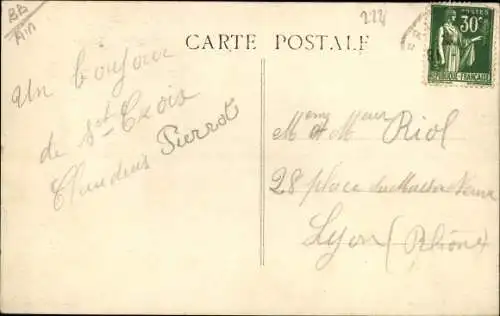 BB
Ain
224
CARTE POSTALE
POSTES
30c
REPUBLIQUE FRANÇAISE
Un bonjour
de St Croix
Claudius Pierrot
Mme et Mr Riol
28 place du
Lyon (Rhône)